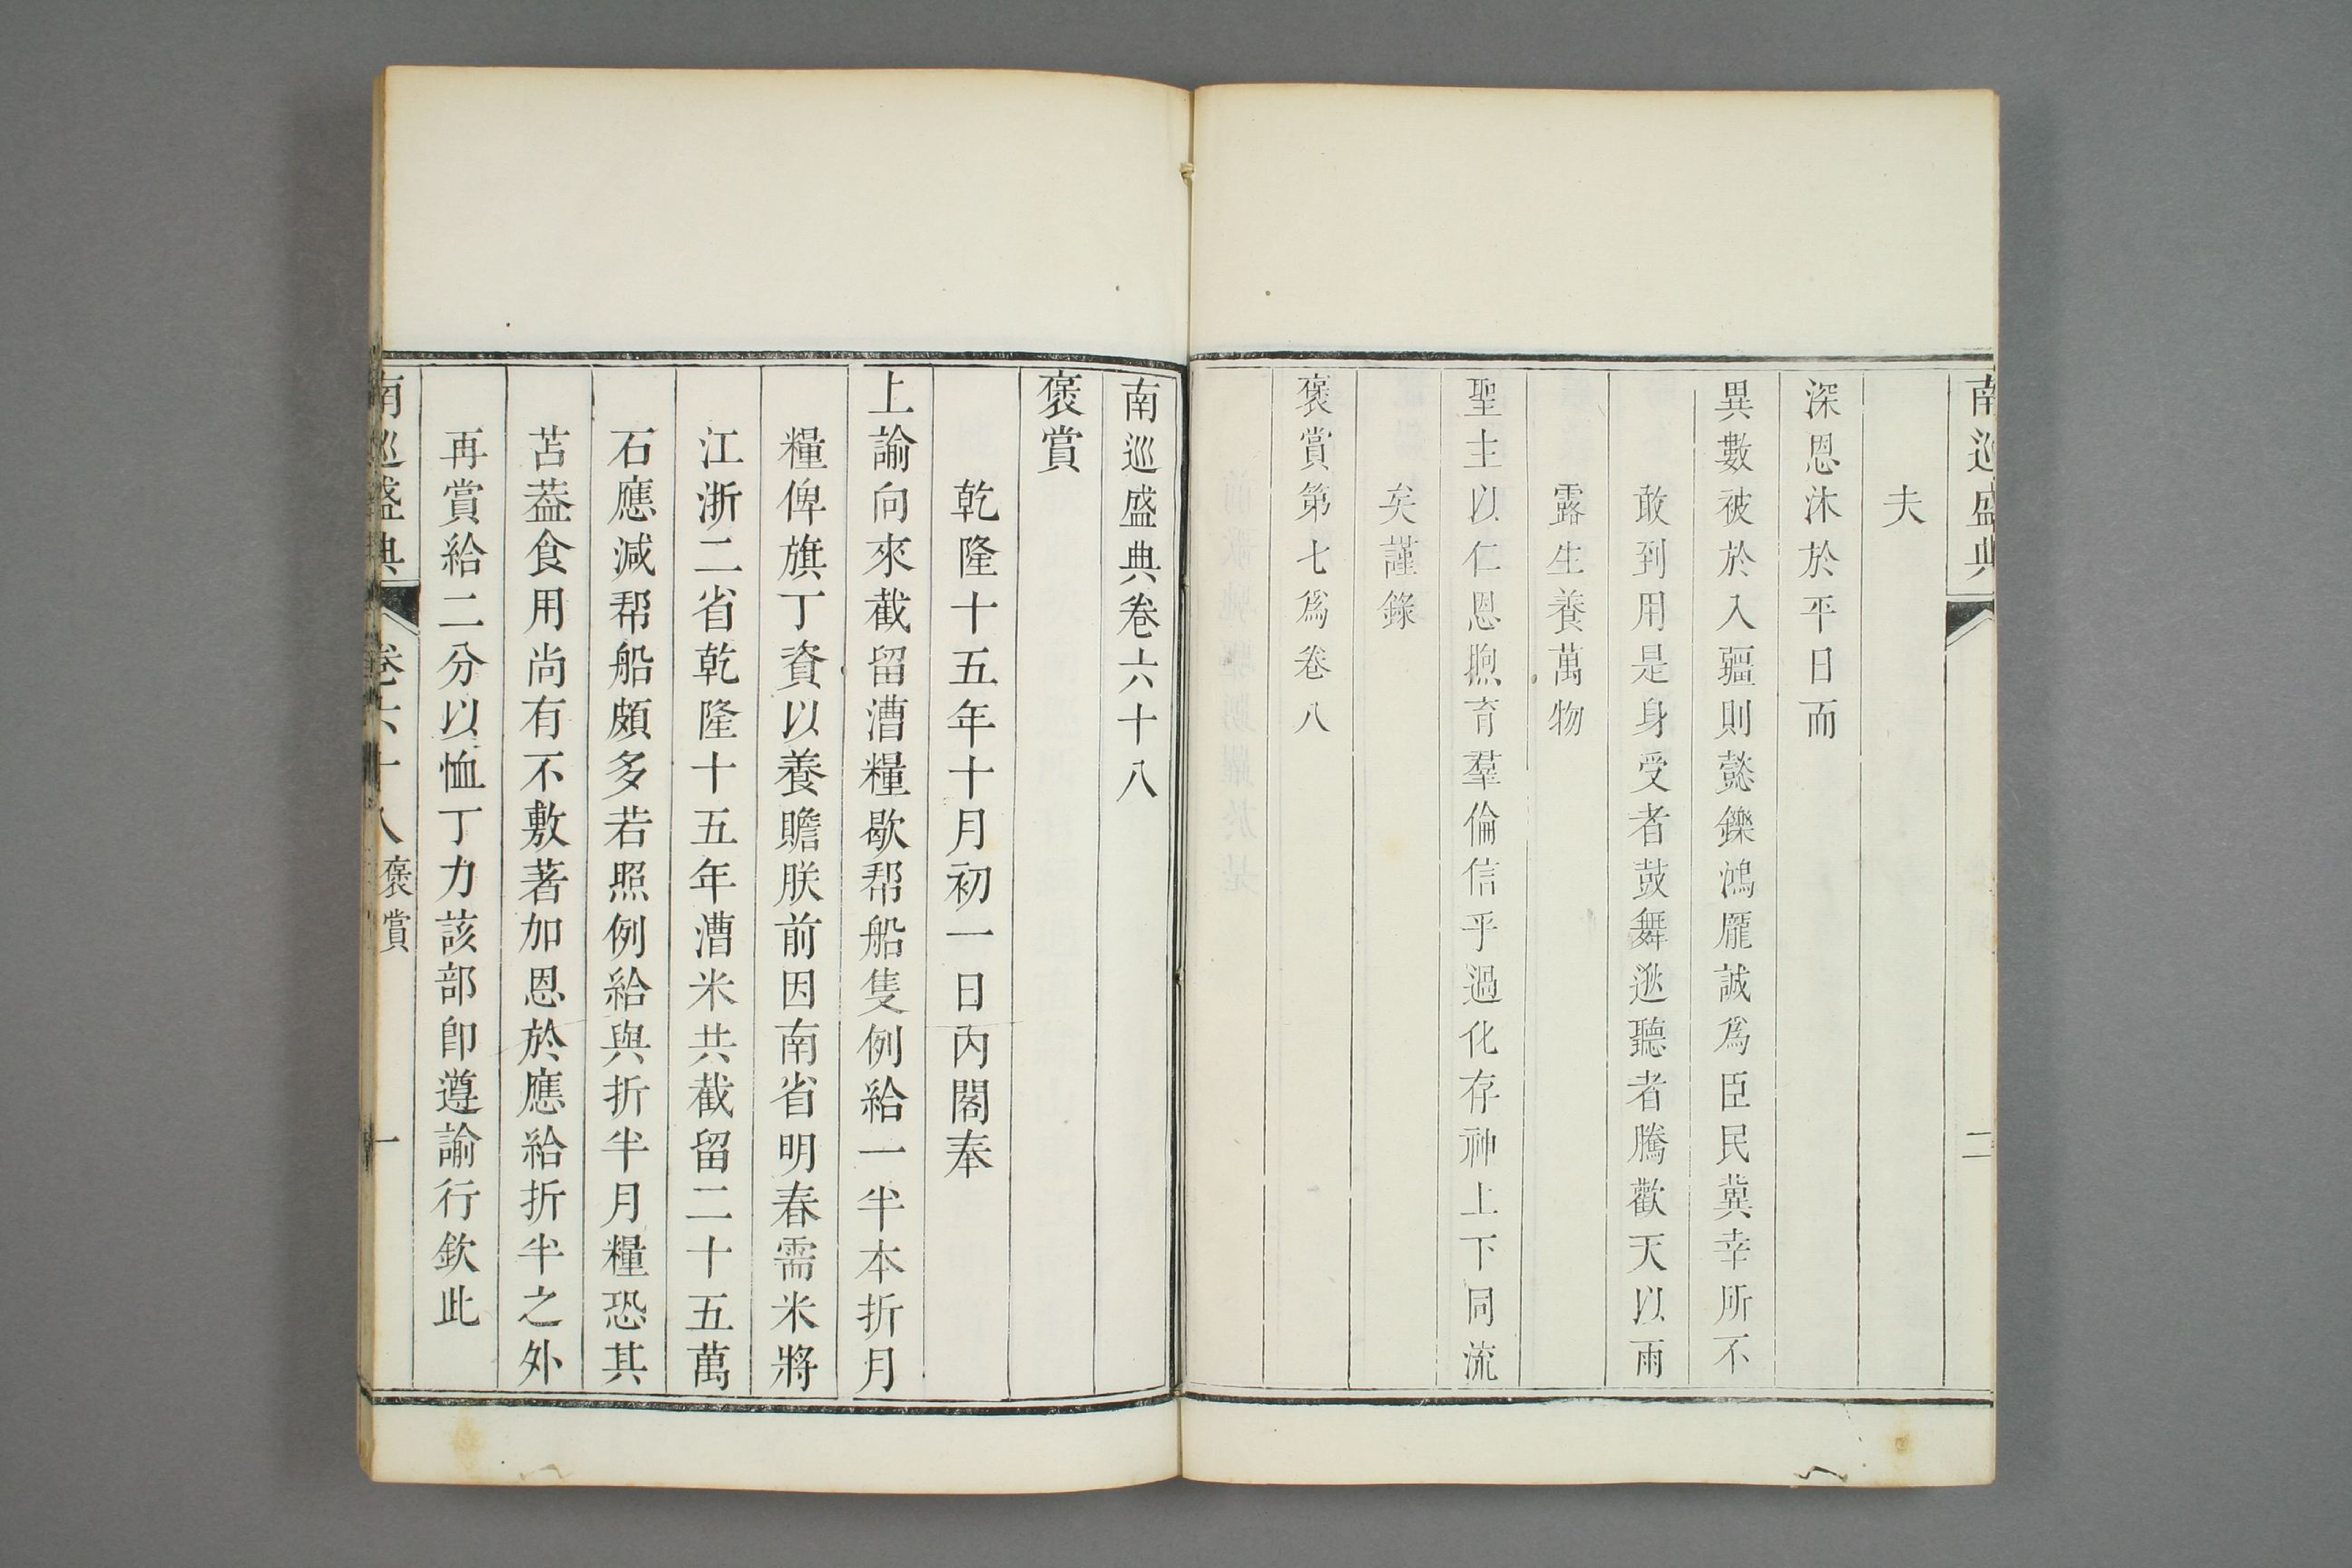 南巡盛典
二
夫
深恩沐於平日而
異數被於入疆則懿鑠鴻龎誠爲臣民冀幸所不
敢到用是身受者鼓舞逖聽者騰歡天以雨
露生養萬物
聖主以仁恩煦育羣倫信乎過化存神上下同流
矣謹錄
褒賞第七爲卷八
南巡盛典卷六十八
褒賞
乾隆十五年十月初一日內閣奉
上諭向來截留漕糧歇帮船隻例給一半本折月
糧俾旗丁資以養贍朕前因南省明春需米將
江浙二省乾隆十五年漕米共截留二十五萬
石應減帮船頗多若照例給與折半月糧恐其
苫葢食用尚有不敷著加恩於應給折半之外
再賞給二分以恤丁力該部卽遵諭行欽此
南巡盛典
卷六十八
褒賞
一